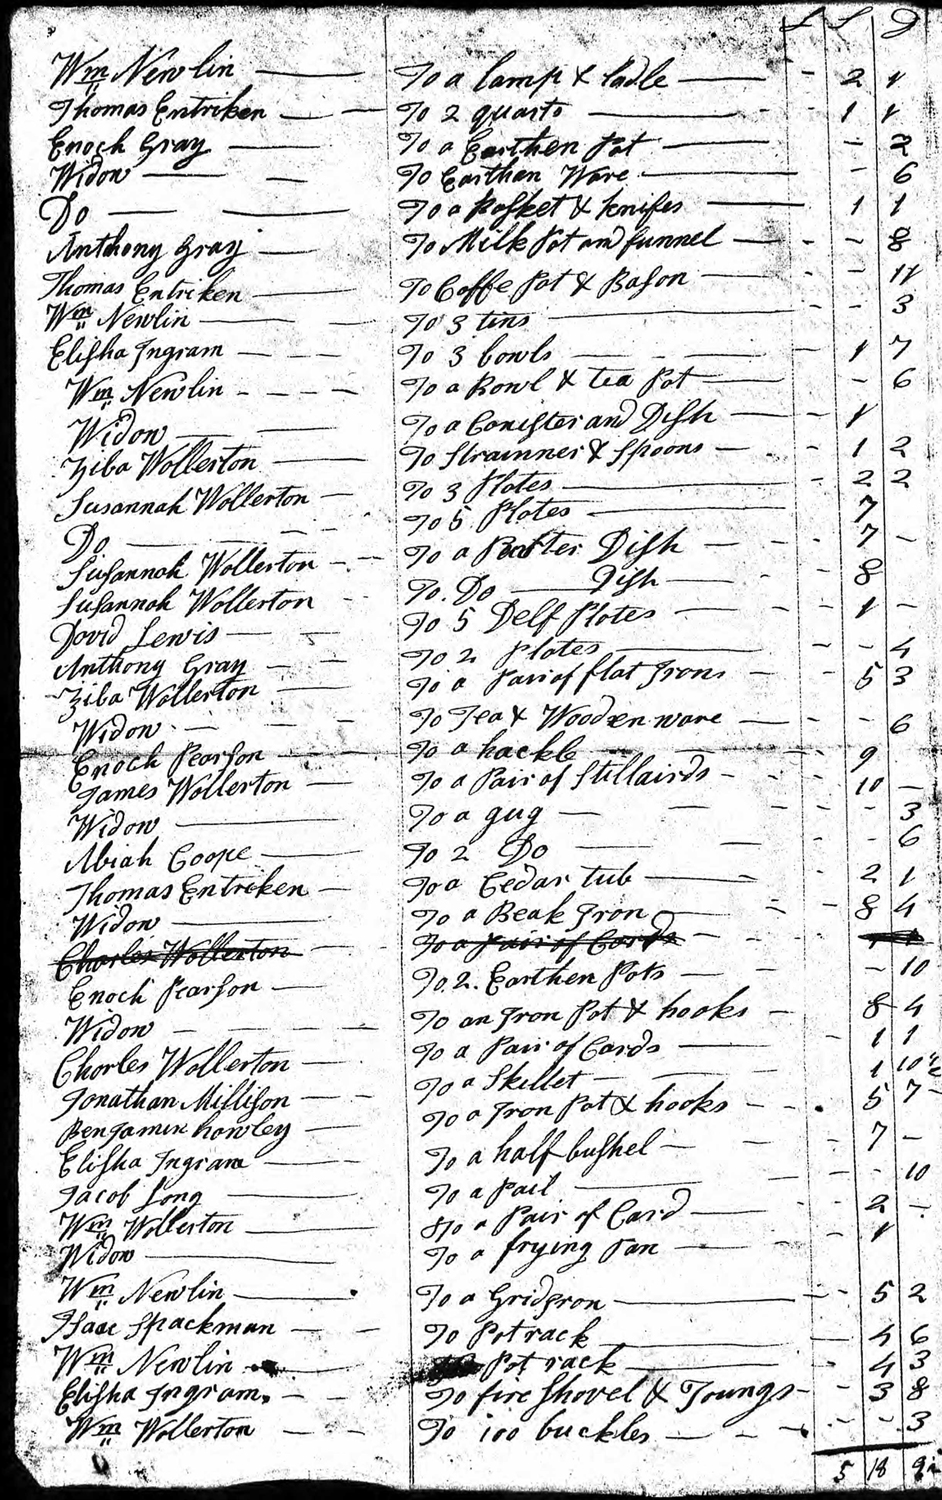 £ S D
Wm Newlin — To a lamp & ladle — - 2 1
Thomas Entriken — To 2 quarts — - - 1 1
Enoch Gray — To a Earthen Pot — - 2
Widow — To Earthan Ware — - - 6
Do — To a Basket & knifes — 1 1
Anthony Gray — To Milk Pot and funnel — - - 8
Thomas Entriken — To Coffe Pot & Bason — - 11
Wm Newlin — To 3 tins — - 3
Elisha Ingram — To 3 bowls — 1 7
Wm Newlin — To a Bowl & tea Pot — - 6
Widow — To a Conister and Dish — 1
Ziba Wollerton — To Strainner & Spoons — 1 2
Susannah Wollerton — To 3 Plates — 2 2
Do — To 5 Plates — 7
Susannah Wollerton — To a Peuter Dish — 7 -
Susannah Wollerton — To Do — Dish — 8
David Lewis — To 5 Delf Plates — 1 -
Anthony Gray — To 2 Plates — - - 4
Ziba Wollerton — To a Pair of flat Irons — 5 3
Widow — To Tea & Wooden ware — - - 6
Enoch Pearson — To a hackle — 9
James Wollerton — To a Pair of Stillairds — 10 —
Widow — To a gug — - - 3
Abiah Coope — To 2 Do — - - 6
Thomas Entreken — To a Cedar tub — 2 1
Widow — To a Beak Iron — 8 4
Charles Wollerton — To a Pair of Cards —
Enoch Pearson — To 2 Earthen Pots — - 10
Widow — To an Iron Pot & hooks — 8 4
Charles Wollerton — To a Pair of Cards — 1 1
Jonathan Millison — To a Skillet — 1 10 1/2
Benjamin howley — To a Iron Pot & hooks — 5 7 -
Elisha Ingram — To a half bushel — 7 -
Jacob Long — To a Pail — - - 10
Wm Wollerton — To a Pair of Card — 2 -
Widow — To a frying Pan — 1
Wm Newlin — To a Gridiron — 5 2
Isaac Spackman — To Potrack — 4 6
Wm Newlin — Pot rack — 4 3
Elisha Ingram — To fire Shovel & Toungs — 3 8
Wm Wollerton — To 100 buckles — - - 3
5 18